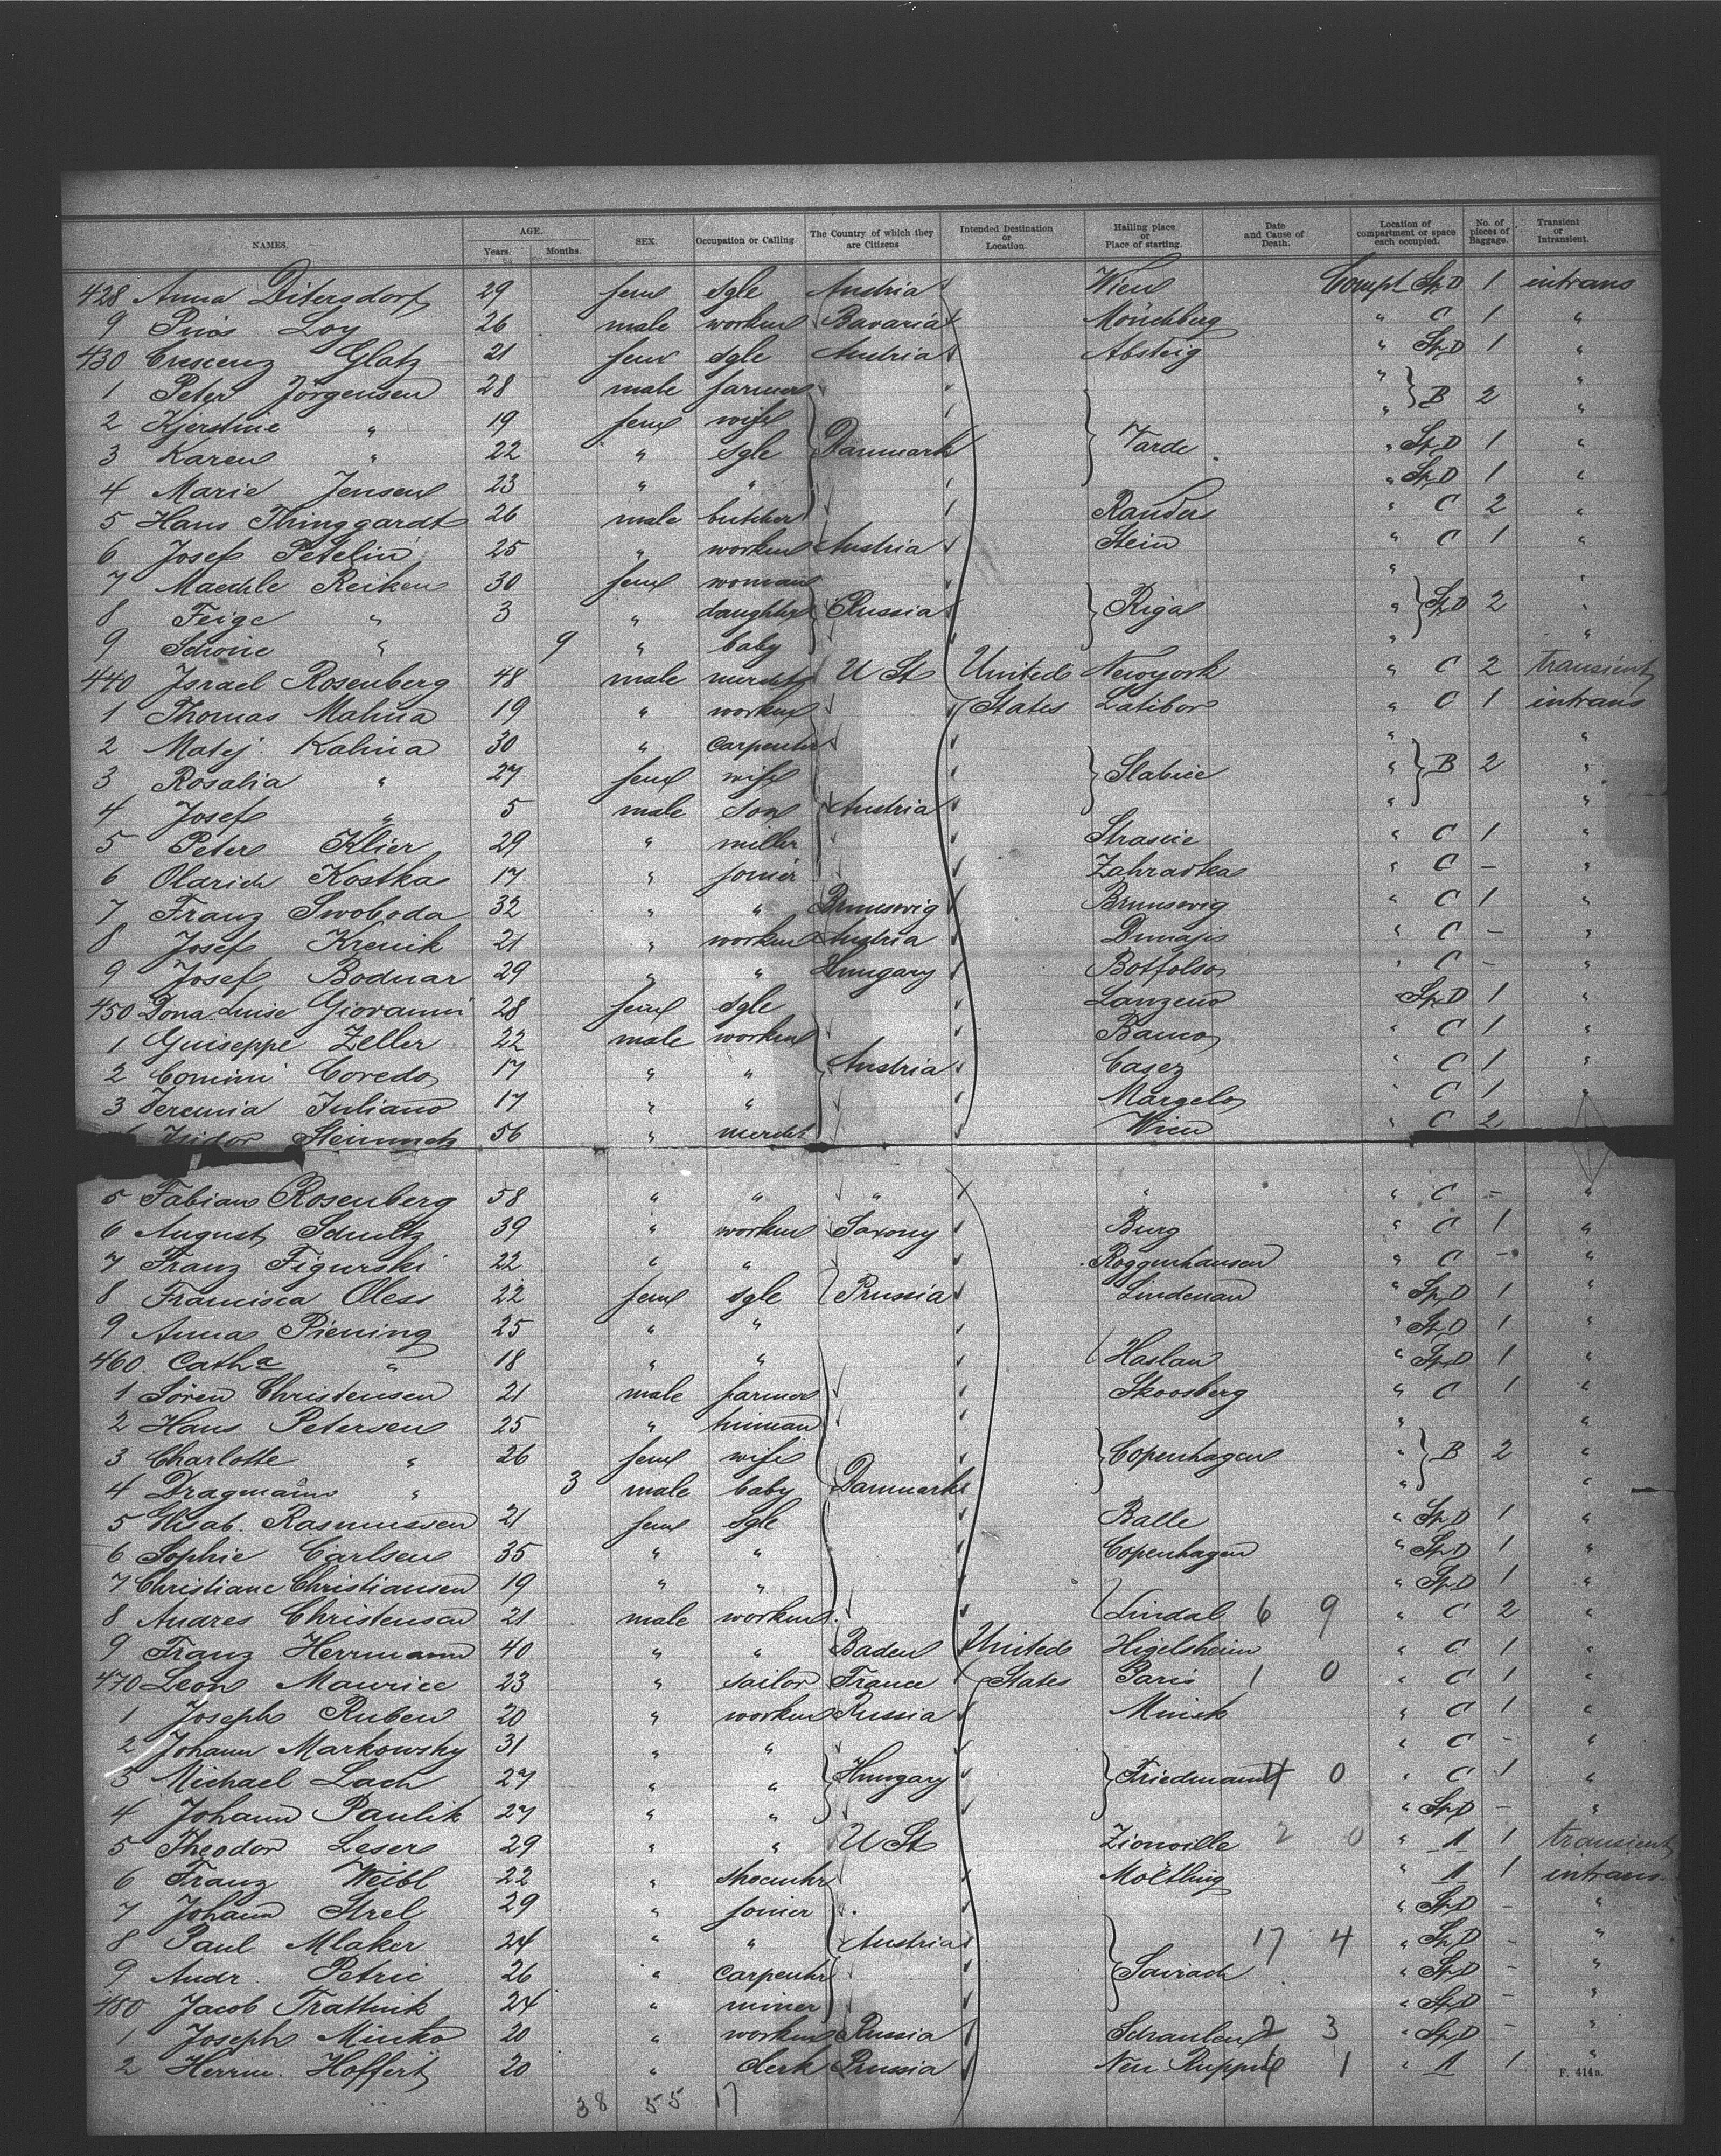 NAMES. AGE. Years. Months. SEX. Occupation or Calling. The Country of which they are Citizens Intended Destination or Location. Hailing place or Place of starting. Date and Cause of Death. Location of compartment or space each occupied. No. of pieces of Baggage. Transient or Intransient.
428 Anna Ditersdorf 29 feml sgle Austria Wien Compt St. D 1 intrans
9 Pius Loy 26 male workm Bavaria Mönchberg " C 1 "
430 Crescenz Glatz 21 feml sgle Austria Absteig " St. D 1 "
1 Peter Jörgensen 28 male farmer " B 2 "
2 Kjerstine " 19 feml wife " "
3 Karen " 22 " sgle Danmark Varde " St. D 1 "
4 Marie Jensen 23 " " " St. D 1 "
5 Hans Thinggardt 26 male butcher Randers " C 2 "
6 Josef Petelin 25 " workm Austria Stein " C 1 "
7 Maechle Reiken 30 feml woman " "
8 Feige " 3 " daughter Russia Riga " St. D 2 "
9 " 9 " baby " "
440 Israel Rosenberg 48 male mercht U St United Newyork " C 2 transient
1 Thomas Malina 19 " workm States Latibor " C 1 intrans
2 Matej. Kalina 30 " carpenter " "
3 Rosalia " 27 feml wife Slabice " B 2 "
4 Josef " 5 male son Austria " "
5 Peter Klier 29 " miller Strasic " C 1 "
6 Oldrich Kostka 17 " joiner Zahradka " C - "
7 Franz Swoboda 32 " " Brunswig Brunswig " C 1 "
8 Josef Krenik 21 " workm Austria Dunajis " C - "
9 Josef Bodnar 29 " " Hungary Botfolso " C - "
450 Dona Luise Giovanni 28 feml sgle Lanzeno St. D 1 "
1 Guiseppe Zeller 22 male workm Banco " C 1 "
2 Comini Coredo 17 " " Austria Casez C 1 "
3 Jeremia Juliano 17 " " Margelo C 1 "
Isidor 56 " mercht Wien " C 2
5 Fabian Rosenberg 58 " " " " " C - "
6 August Schultz 39 " workm Saxony Burg " C 1 "
7 Franz Figurski 22 " " Roggenhausen " C - "
8 Francisca Oless 22 feml sgle Prussia Lindenau " St. D 1 "
9 Anna Piening 25 " " " St. D 1 "
460 Catha " 18 " " Haslau " St. D 1 "
1 Sören Christensen 21 male farmer Skoosberg " C 1 "
2 Hans Petersen 25 " tinman " "
3 Charlotte " 26 feml wife Copenhagen " B 2 "
4 Dragmann " 3 male baby Danmark " "
5 Elisab. Rasmussen 21 feml sgle Balle " St. D 1 "
6 Sophie Carlsen 35 " " Copenhagen " St. D 1 "
7 Christiane Christiansen 19 " " " St. D 1 "
8 Andres Christensen 21 male workm Lindal 6 9 " C 2 "
9 Franz Herrmann 40 " " Baden United Higelsheim " C 1 "
470 Leon Maurice 23 " sailor France States Paris 1 0 " C 1 "
1 Joseph Ruben 20 " workm Russia Minsk " C 1 "
2 Johann Markowsky 31 " " " C - "
3 Michael Lach 27 " " Hungary Friedmann 4 0 " C 1 "
4 Johann Paulik 27 " " " St. D - "
5 Theodor Leser 29 " " U St Zionville 2 0 " A 1 transient
6 Franz Weibl 22 " shoemkr Möttling " A 1 intrans
7 Johann Strel 29 " joiner " St. D - "
8 Paul Mlaker 24 " " Austria 17 4 " St. D - "
9 Andr. Petric 26 " carpentr Sairach " St. D - "
480 Jacob Trattnik 24 " miner " St. D - "
1 Joseph Minko 20 " workm Russia 2 3 " St. D - "
2 Herrm. Hoffert 20 " clerk Prussia Neu Ruppin 1 " A 1 "
F. 414a.
38 55 17